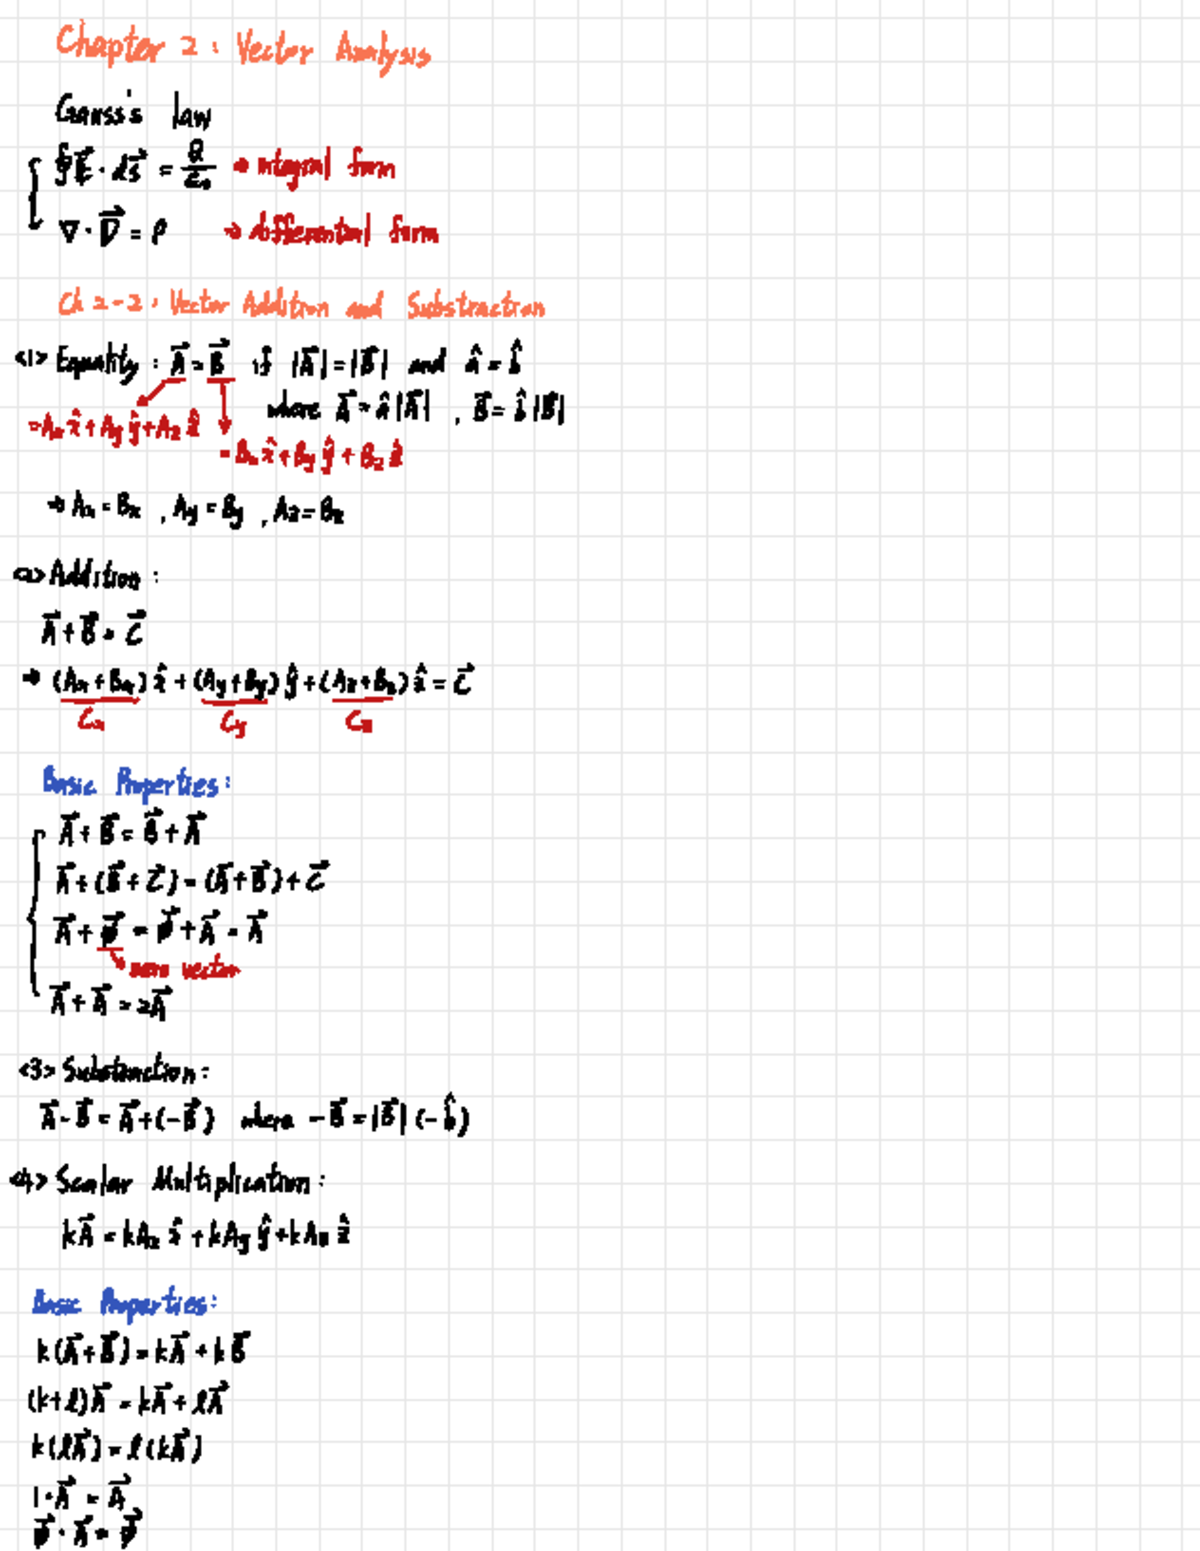 Chapter 2: Vector Analysis
Gauss's law
∮E⃗ · ds⃗ = Q/ε₀ → integral form
∇ · D⃗ = ρ → differential form
Ch 2-2: Vector Addition and Substraction
<1> Equality: A⃗ = B⃗ if |A⃗| = |B⃗| and â = b̂
where A⃗ = â|A⃗| , B⃗ = b̂|B⃗|
= Aₓx̂ + A_yŷ + A_zẑ
= Bₓx̂ + B_yŷ + B_zẑ
→ Aₓ = Bₓ , A_y = B_y , A_z = B_z
<2> Addition:
A⃗ + B⃗ = C⃗
→ (Aₓ + Bₓ)x̂ + (A_y + B_y)ŷ + (A_z + B_z)ẑ = C⃗
Cₓ C_y C_z
Basic Properties:
A⃗ + B⃗ = B⃗ + A⃗
A⃗ + (B⃗ + C⃗) = (A⃗ + B⃗) + C⃗
A⃗ + 0⃗ = 0⃗ + A⃗ = A⃗
zero vector
A⃗ + A⃗ = 2A⃗
<3> Substraction:
A⃗ - B⃗ = A⃗ + (-B⃗) where -B⃗ = |B⃗|(-b̂)
<4> Scalar Multiplication:
kA⃗ = kAₓx̂ + kA_yŷ + kA_zẑ
Basic Properties:
k(A⃗ + B⃗) = kA⃗ + kB⃗
(k + l)A⃗ = kA⃗ + lA⃗
k(lA⃗) = l(kA⃗)
1 · A⃗ = A⃗
0⃗ · A⃗ = 0⃗